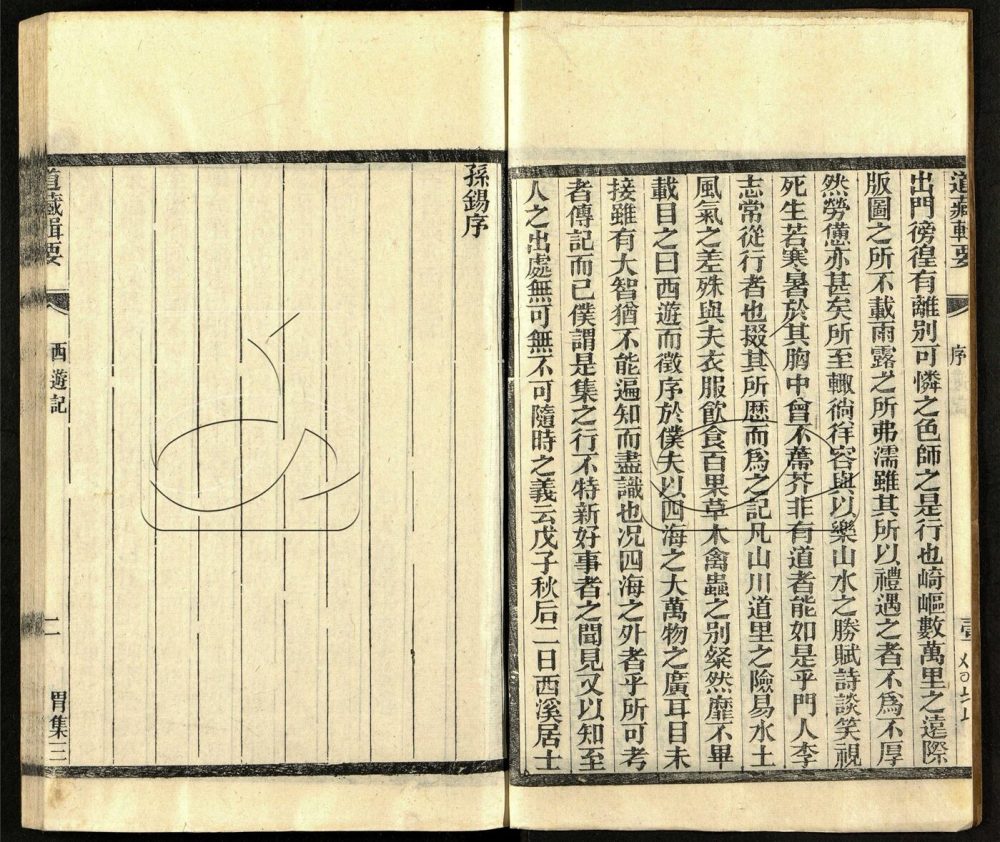 道藏輯要
序
出門徬徨有離別可憐之色師之是行也崎嶇數萬里之遠際
版圖之所不載雨露之所弗濡雖其所以禮遇之者不爲不厚
然勞憊亦甚矣所至輒徜徉容與以樂山水之勝賦詩談笑視
死生若寒暑於其胸中曾不蔕芥非有道者能如是乎門人李
志常從行者也掇其所歷而爲之記凡山川道里之險易水土
風氣之差殊與夫衣服飲食百果草木禽蟲之別粲然靡不畢
載目之曰西遊而徵序於僕夫以四海之大萬物之廣耳目未
接雖有大智猶不能遍知而盡識也况四海之外者乎所可考
者傳記而已僕謂是集之行不特新好事者之聞見又以知至
人之出處無可無不可隨時之義云戊子秋后二日西溪居士
孫錫序
道藏輯要
西遊記
二
胃集三